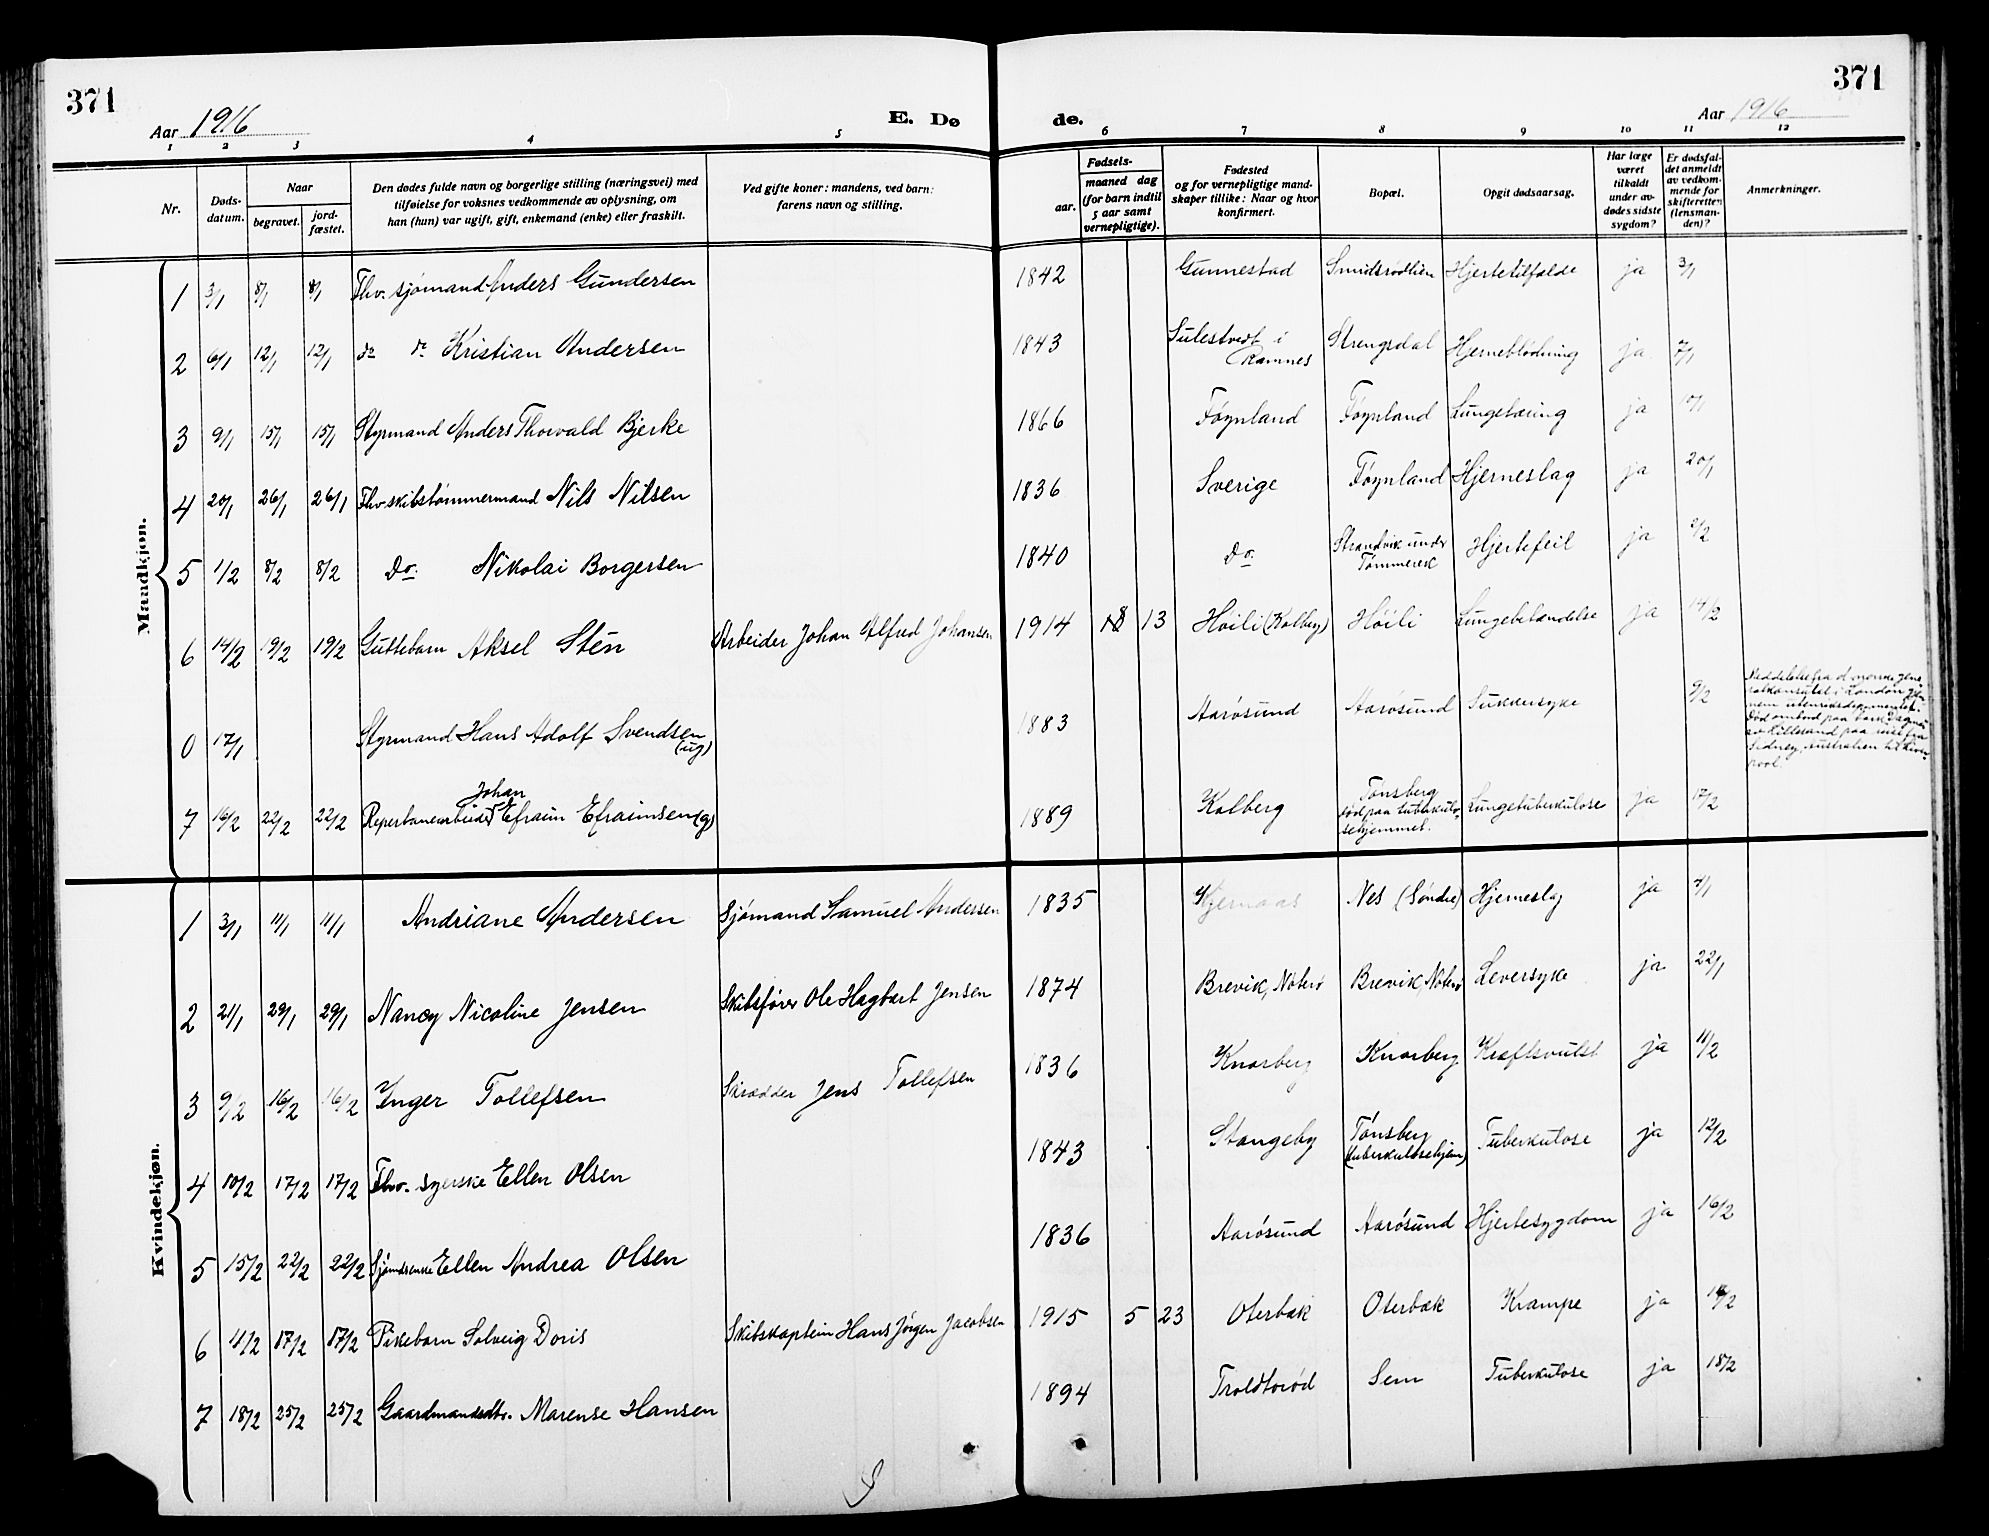 371
371
Aar 1916
E. Døde.
Aar 1916
1 2 3 4 5 6 7 8 9 10 11 12
Nr.
Døds-
datum.
Naar
begravet.
jord-
fæstet.
Den dødes fulde navn og borgerlige stilling (næringsvei) med
tilføielse for voksnes vedkommende av oplysning, om
han (hun) var ugift, gift, enkemand (enke) eller fraskilt.
Ved gifte koner: mandens, ved barn:
farens navn og stilling.
Fødsels-
aar.
maaned dag
(for barn indtil
5 aar samt
vernepligtige).
Fødested
og for vernepligtige mand-
skaper tillike: Naar og hvor
konfirmert.
Bopæl.
Opgit dødsaarsag.
Har læge
været
tilkaldt
under av-
dødes sidste
sygdom?
Er dødsfal-
det anmeldt
av vedkom-
mende for
skifteretten
(lensman-
den)?
Anmerkninger.
Mandkjøn.
1 3/1 8/1 8/1 Fhv. sjømand Anders Gundersen 1842 Gunnestad Smidsrødlien Hjertetilfælde ja 3/1
2 6/1 12/1 12/1 do do Kristian Andersen 1843 Sulestvedt i Ramnes Strengsdal Hjerneblødning ja 7/1
3 9/1 15/1 15/1 Styrmand Anders Thorvald Bjerke 1866 Føynland Føynland Lungetæring ja 10/1
4 20/1 26/1 26/1 Fhv. skibstømmermand Nils Nilsen 1836 Sverige Føynland Hjerneslag ja 20/1
5 1/2 8/2 8/2 Do. Nikolai Borgersen 1840 Do. Strandvik under Tømmerek Hjertefeil ja 2/2
6 14/2 19/2 19/2 Guttebarn Aksel Sten Arbeider Johan Alfred Johansen 1914 8 13 Høili (Kolberg) Høili Lungebetændelse ja 14/2
0 17/1 Styrmand Hans Adolf Svendsen (ug) 1883 Aarøsund Aarøsund Sukkersyke 9/2
Meddelelse fra d. norske gene-
ralkonsulat i London gjen-
nem utenriksdepartementet.
Død ombord paa bark Dagny
av Lillesand paa reise fra
Sidney, Australien til Liver-
pool.
7 16/2 22/2 22/2 Reperbanearbeider Johan Efraim Efraimsen (g) 1889 Kolberg Tønsberg død paa tuberkulo-
sehjemmet. Lungetuberkulose ja 17/2
Kvindekjøn.
1 3/1 11/1 11/1 Andriane Andersen Sjømand Samuel Andersen 1835 Hjernaas Nes (Søndre) Hjerneslag ja 4/1
2 21/1 29/1 29/1 Nancy Nicoline Jensen Skibsfører Ole Hagbart Jensen 1874 Brevik, Nøterø Brevik, Nøterø Leversyke ja 22/1
3 9/2 16/2 16/2 Inger Tollefsen Skrædder Jens Tollefsen 1836 Knarberg Knarberg Kræftsvulst ja 11/2
4 10/2 17/2 17/2 Fhv. syerske Ellen Olsen 1843 Stangeby Tønsberg (tuberkulosehjem) Tuberkulose ja 12/2
5 15/2 22/2 22/2 Sjømdsenke Ellen Andrea Olsen 1836 Aarøsund Aarøsund Hjertesygdom ja 16/2
6 11/2 17/2 17/2 Pikebarn Solveig Doris Skibskaptein Hans Jørgen Jacobsen 1915 5 23 Oterbæk Oterbæk Krampe ja 14/2
7 18/2 25/2 25/2 Gaardmandsdtr. Marense Hansen 1894 Troldtorød Sem Tuberkulose ja 18/2